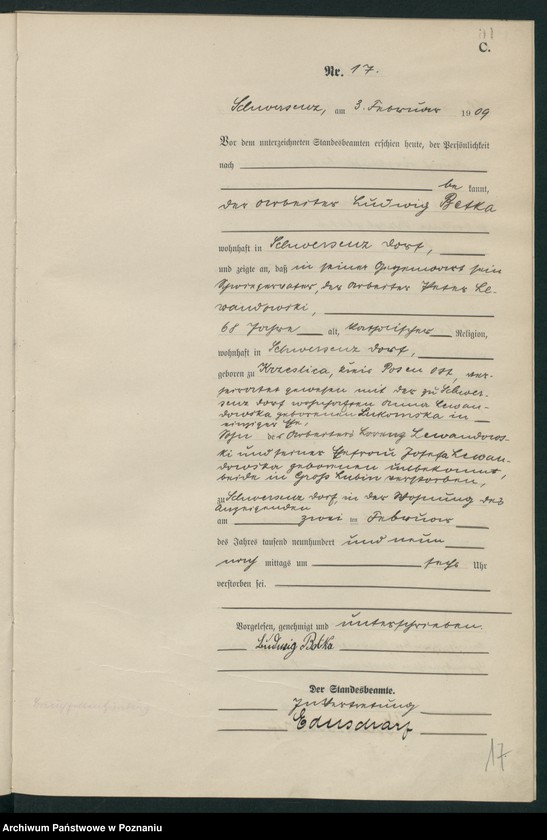 C.
Nr. 17.
Schwersenz, am 3. Februar 1909
Vor dem unterzeichneten Standesbeamten erschien heute, der Persönlichkeit
nach
be kannt,
der Arbeiter Ludwig Betka
wohnhaft in Schwersenz Dorf,
und zeigte an, daß in seiner Gegenwart sein
Schwiegervater, der Arbeiter Peter Le-
wandowski,
68 Jahre alt, katholischer Religion,
wohnhaft in Schwersenz Dorf,
geboren zu Krzeslica, Kreis Posen Ost, ver-
heiratet gewesen mit der zu Schwer-
senz Dorf wohnhaften Anna Lewan-
dowska geborenen Lukomska in
einziger Ehe,
Sohn des Arbeiters Lorenz Lewandows-
ki und seiner Ehefrau Josefa Lewan-
dowska geborenen unbekannt,
beide in Groß Lubin verstorben,
zu Schwersenz Dorf, in der Wohnung des
Anzeigenden
am zwei ten Februar
des Jahres tausend neunhundert und neun
nach mittags um sechs Uhr
verstorben sei.
Vorgelesen, genehmigt und unterschrieben.
Ludwig Betka
Der Standesbeamte.
In Vertretung
17
Archiwum Państwowe w Poznaniu